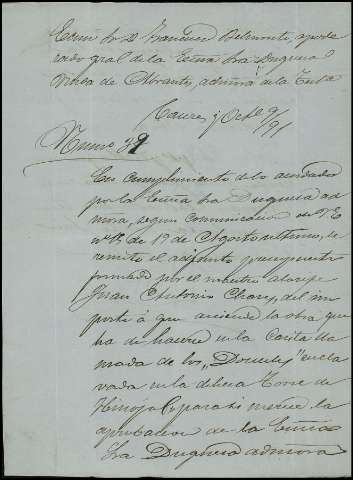 Excmo Sr D Francisco Belmonte, apode
rado gral de la Excma Sra Duquesa
Viuda de Abrantes, admora de la Testa
Caceres y Octe 9/91
Numo 39
En cumplimiento de lo acordado
por la Excma Sra Duquesa ad
mora, segun comunicacion de V.E
nº 15 de 19 de Agosto ultimo, le
remito el adjunto presupuesto
formado por el maestro alarife
Juan Antonio Chaves, del im
porte á que asciende la obra que
ha de hacerse en la Casita lla
mada de los "Donceles" encla
vada en la dehesa Torre de
Hinojo, para si merece la
aprobacion de la Excma
Sra Duquesa admora